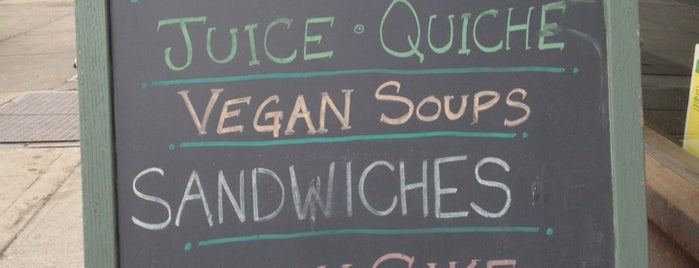 JUICE · QUICHE
VEGAN SOUPS
SANDWICHES